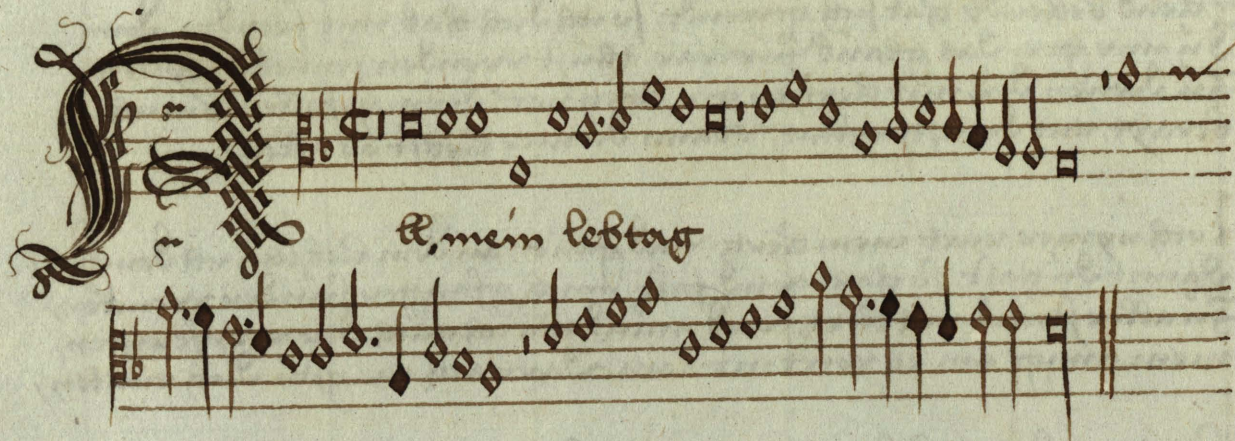 All mein lebtag